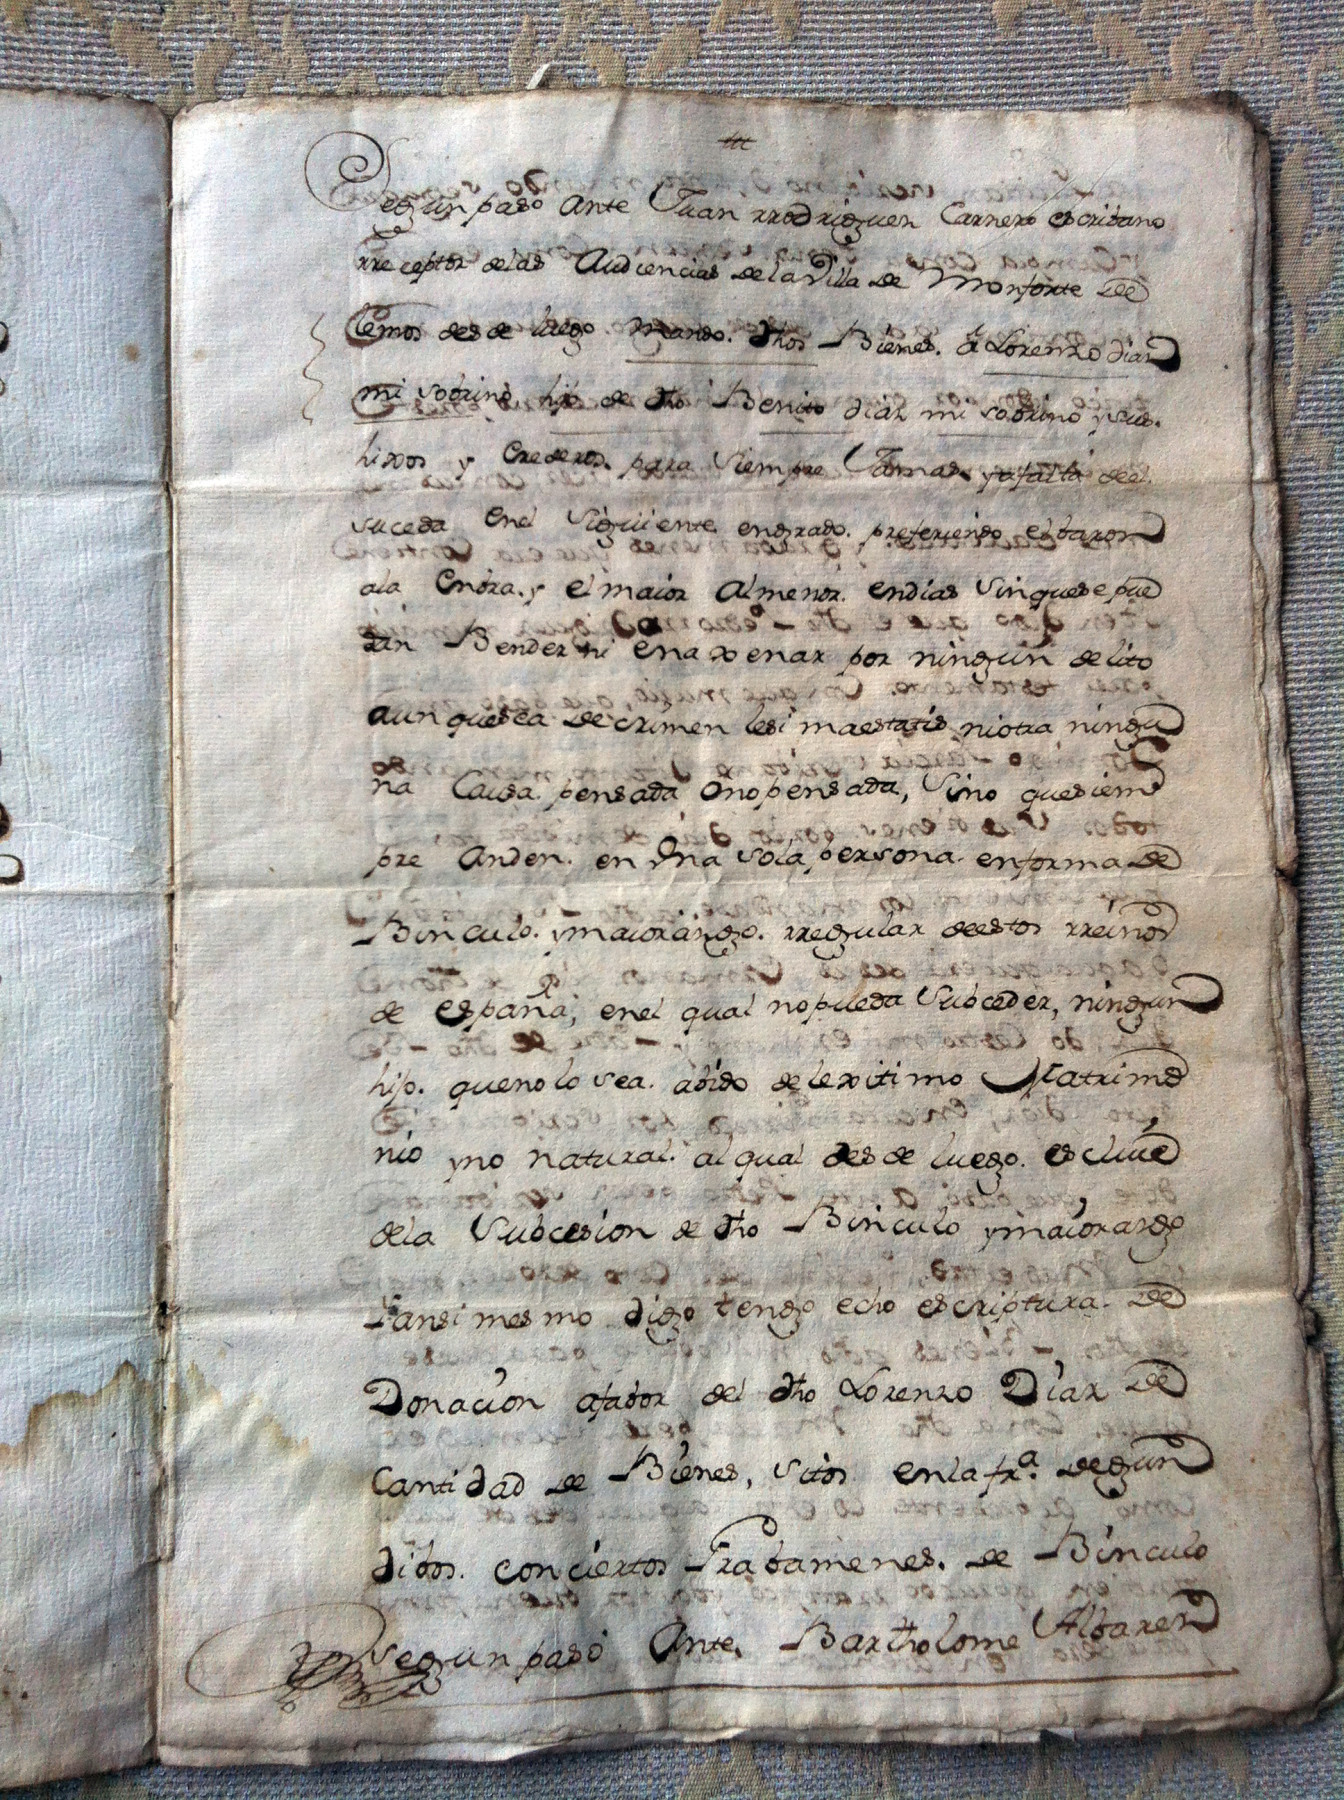 Segun paso ante Juan rrodriguez Carnero escribano
rreceptor delas Audiencias dela Villa de Monforte de
Lemos desde luego mando. dhos Bienes. a Lorenzo diaz
mi sobrino hijo de dho Benito diaz mi sobrino y sus.
hixos y Erederos. para siempre Jamas. y afalta deel.
suceda enel siguiente engrado. prefiriendo el baron
ala enbra. y el maior al menor. endias sinquese pue
dan Bender ni enaxenar por ningun delito
aunquesea de crimen lesi maestatis niotra ningu
na Causa. pensada onopensada, sino quesiem
pre Anden. en Vna sola persona. enforma de
Binculo. ymaiorazgo. rregular deestos rreinos
de españa, enel qual nopueda subceder, ningun
hijo. quenolo sea. abido delexitimo Matrimo
nio yno natural. alqual desde luego. escluie
dela Subcesion de dho Binculo ymaiorazgo
Yansimesmo digo tengo echo escriptura. de
Donacion afabor del dho Lorenzo Diaz de
Cantidad de Bienes, sitos enla fra. de
dibos. conciertos Grabamenes. de Binculo
segun paso Ante. Bartholome Albarez